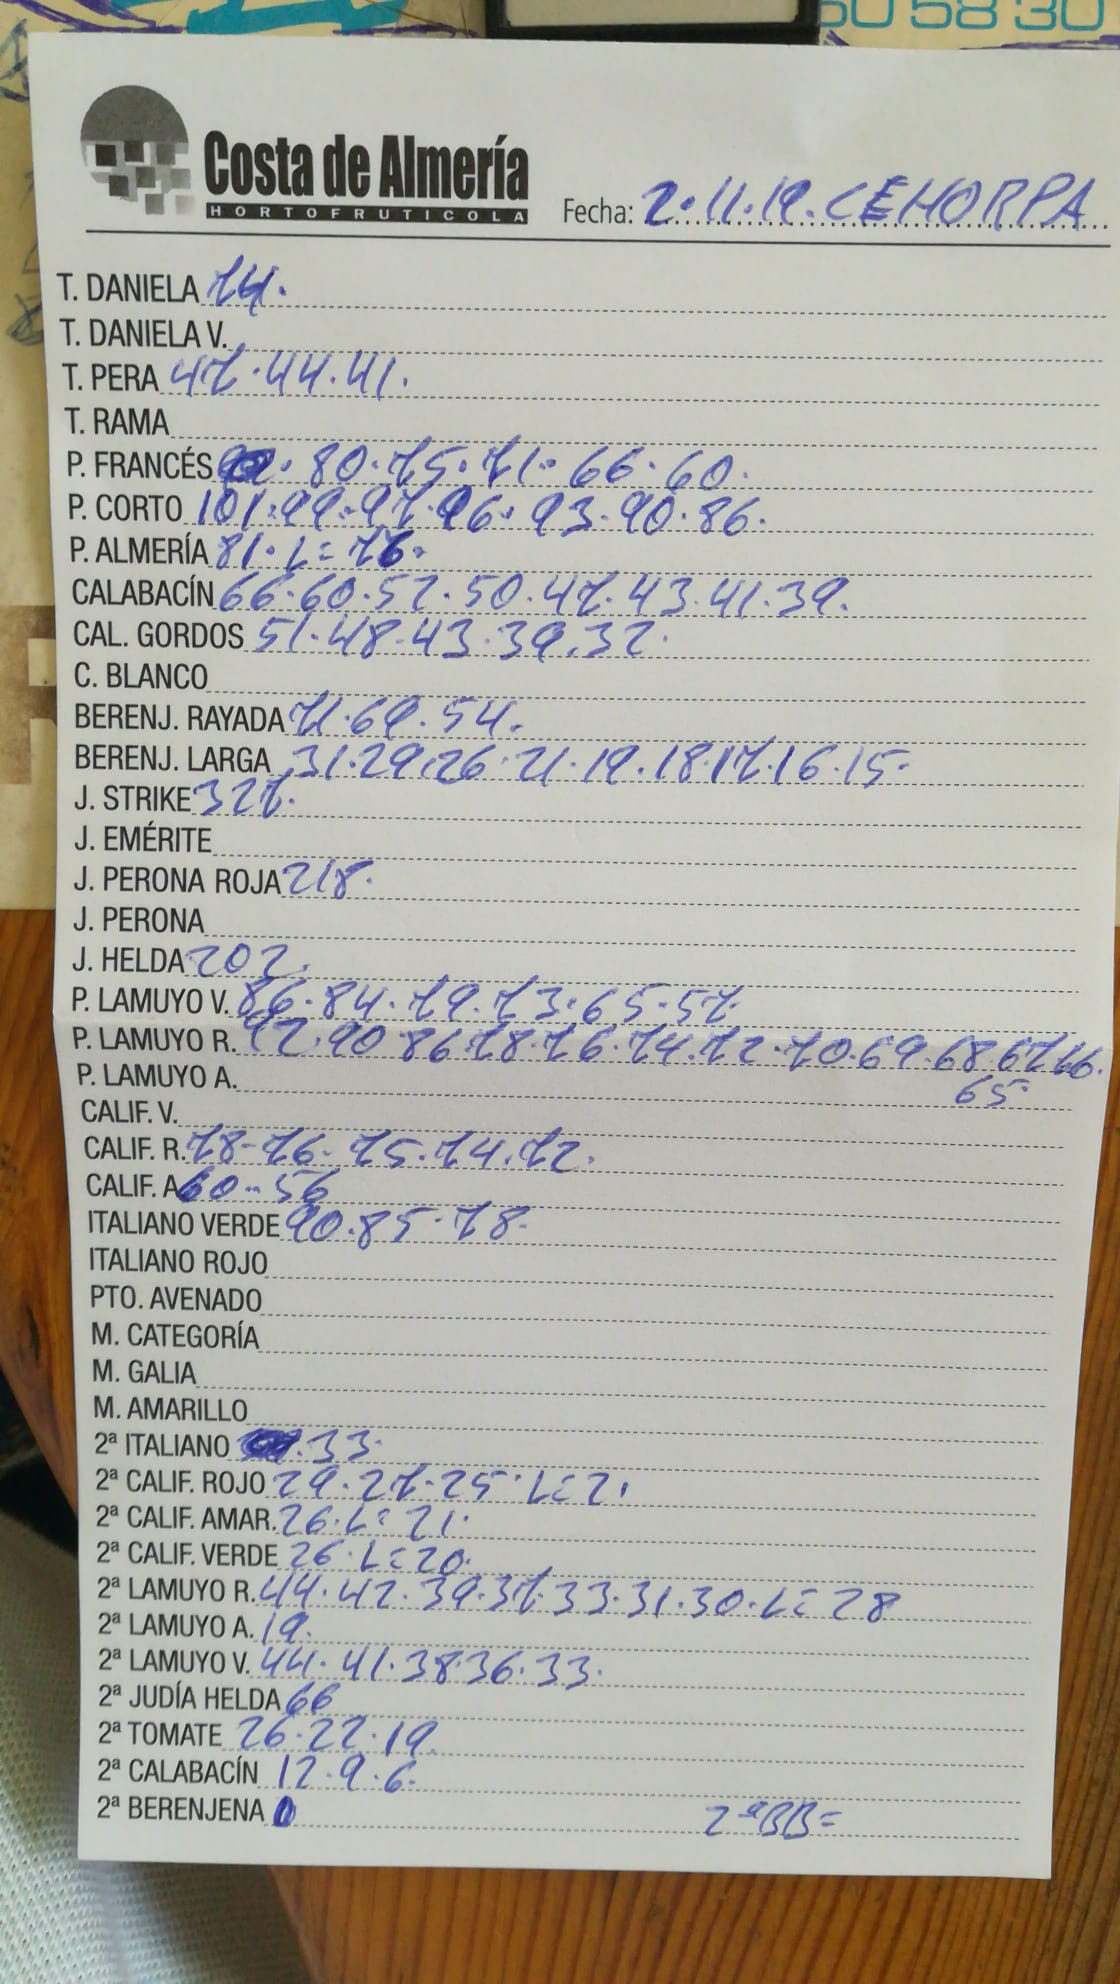 50 58 30
Costa de Almería
HORTOFRUTICOLA
Fecha: 2.11.19. CEHORPA
T. DANIELA 74.
T. DANIELA V.
T. PERA 47.44.41.
T. RAMA
P. FRANCÉS 80.75.71.66.60.
P. CORTO 101.99.97.96.93.90.86.
P. ALMERÍA 81.L=76.
CALABACÍN 66.60.52.50.47.43.41.39.
CAL. GORDOS 51.48.43.39.32.
C. BLANCO
BERENJ. RAYADA 71.69.54.
BERENJ. LARGA 31.29.26.21.19.18.17.16.15.
J. STRIKE 327.
J. EMÉRITE
J. PERONA ROJA 218.
J. PERONA
J. HELDA 202.
P. LAMUYO V. 86.84.79.73.65.57.
P. LAMUYO R. 90.86.78.76.74.72.70.69.68.67.66.
65.
P. LAMUYO A.
CALIF. V.
CALIF. R. 78-76.75.74.72.
CALIF. A 60..56
ITALIANO VERDE 90.85.78.
ITALIANO ROJO
PTO. AVENADO
M. CATEGORÍA
M. GALIA
M. AMARILLO
2ª ITALIANO .33.
2ª CALIF. ROJO 29.27.25.L=21
2ª CALIF. AMAR. 26.L=21.
2ª CALIF. VERDE 26.L=20.
2ª LAMUYO R. 44.42.39.37.33.31.30.L=28
2ª LAMUYO A. 19.
2ª LAMUYO V. 44.41.38.36.33.
2ª JUDÍA HELDA 66
2ª TOMATE 26.22.19.
2ª CALABACÍN 12.9.6.
2ª BERENJENA 0 2ªBB=